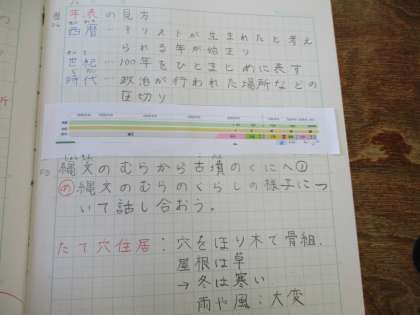 年表の見方
西暦…キリストが生まれたと考え
られる年が始まり
世紀…100年をひとまとめに表す
時代…政治が行われた場所などの
区切り
縄文のむらから古墳のくにへ①
め 縄文のむらのくらしの様子につ
いて話し合おう。
たて穴住居：穴をほり木で骨組.
屋根は草
→冬は寒い
雨や風：大変